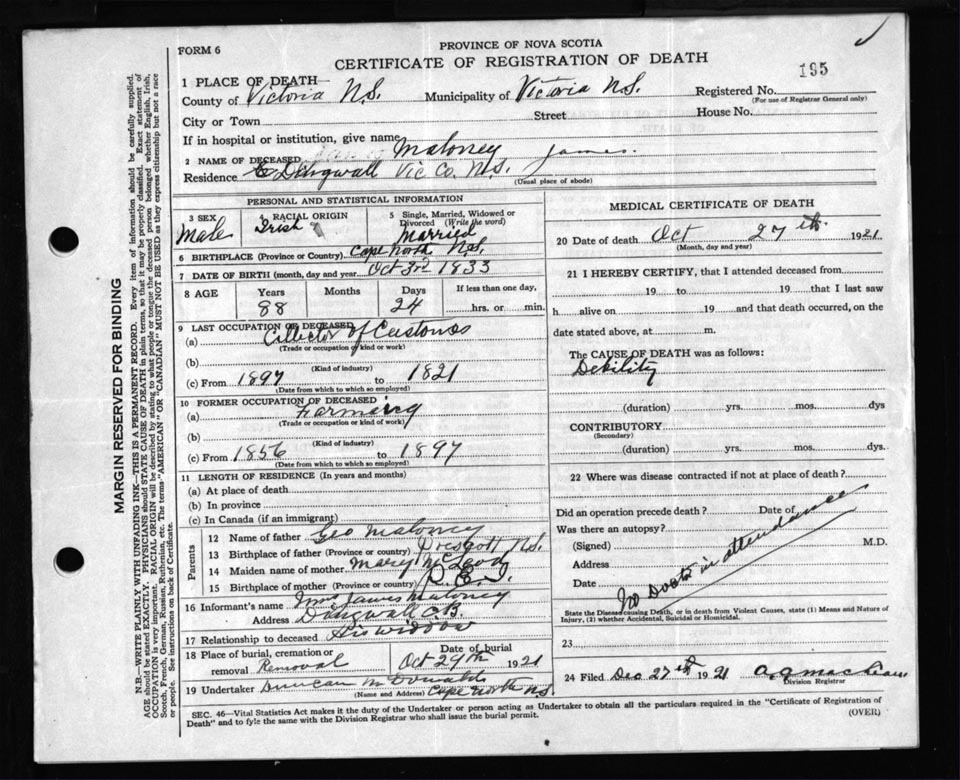 FORM 6
PROVINCE OF NOVA SCOTIA
CERTIFICATE OF REGISTRATION OF DEATH
195
1 PLACE OF DEATH—
County of Victoria N.S. Municipality of Victoria N.S. Registered No.
(For use of Registrar General only)
City or Town Street House No.
If in hospital or institution, give name
2 NAME OF DECEASED Maloney James.
Residence Dingwall Vic Co. N.S.
(Usual place of abode)
PERSONAL AND STATISTICAL INFORMATION
3 SEX Male
4 RACIAL ORIGIN Irish
5 Single, Married, Widowed or Divorced (Write the word) Married
6 BIRTHPLACE (Province or Country) Cape North N.S.
7 DATE OF BIRTH (month, day and year) Oct 3rd 1833
8 AGE Years 88 Months Days 24 If less than one day, hrs. or min.
9 LAST OCCUPATION OF DECEASED
(a) Collector of Customs
(Trade or occupation or kind or work)
(b)
(Kind of industry)
(c) From 1897 to 1821
(Date from which to which so employed)
10 FORMER OCCUPATION OF DECEASED
(a) Farming
(Trade or occupation or kind of work)
(b)
(Kind of industry)
(c) From 1856 to 1897
(Date from which to which so employed)
11 LENGTH OF RESIDENCE (In years and months)
(a) At place of death
(b) In province
(c) In Canada (if an immigrant)
Parents
12 Name of father Geo Maloney
13 Birthplace of father (Province or country) N.S.
14 Maiden name of mother Mary McLeod
15 Birthplace of mother (Province or country) P.E.I.
16 Informant's name Mrs James Maloney
Address C.B.
17 Relationship to deceased His widow
18 Place of burial, cremation or removal Removal Date of burial Oct 29th 1921
19 Undertaker Duncan McDonald
(Name and Address) Cape North N.S.
MEDICAL CERTIFICATE OF DEATH
20 Date of death Oct 27th 1921
(Month, day and year)
21 I HEREBY CERTIFY, that I attended deceased from
19 to 19 that I last saw
h alive on 19 and that death occurred, on the
date stated above, at m.
The CAUSE OF DEATH was as follows:
Debility
(duration) yrs. mos. dys
CONTRIBUTORY
(Secondary)
(duration) yrs. mos. dys.
22 Where was disease contracted if not at place of death?
Did an operation precede death? Date of
Was there an autopsy?
(Signed) M.D.
Address
Date
No Doctor in attendance
State the Disease causing Death, or in death from Violent Causes, state (1) Means and Nature of
Injury, (2) whether Accidental, Suicidal or Homicidal.
23
24 Filed Dec 27th 1921
Division Registrar
SEC. 46—Vital Statistics Act makes it the duty of the Undertaker or person acting as Undertaker to obtain all the particulars required in the "Certificate of Registration of
Death" and to fyle the same with the Division Registrar who shall issue the burial permit. (OVER)
MARGIN RESERVED FOR BINDING
N.B.—WRITE PLAINLY WITH UNFADING INK—THIS IS A PERMANENT RECORD. Every item of information should be carefully supplied.
AGE should be stated EXACTLY. PHYSICIANS should STATE CAUSE OF DEATH in plain terms, so that it may be properly classified. Exact statement of
OCCUPATION is very important. RACIAL ORIGIN will be described by stating to what people or tongue the deceased person belonged whether English, Irish,
Scotch, French, German, Russian, Ruthenian, etc. The terms "AMERICAN" OR "CANADIAN" MUST NOT BE USED as they express citizenship but not a race
or people. See instructions on back of Certificate.